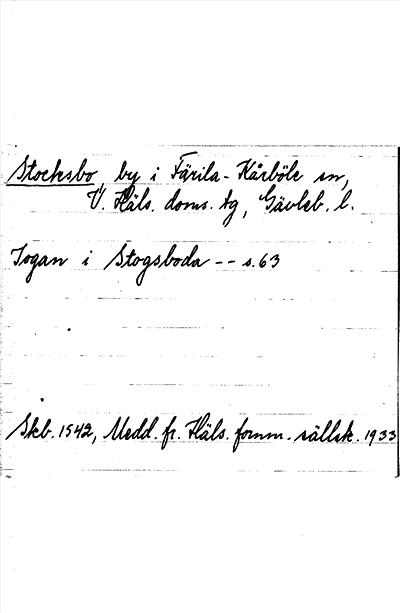 Stocksbo, by i Färila-Kårböle sn,
V. Häls. doms. tg, Gävleb. l.
Jogan i Stogsboda -- s. 63
Skb. 1542, Medd. fr. Häls. fornm. sällsk. 1933